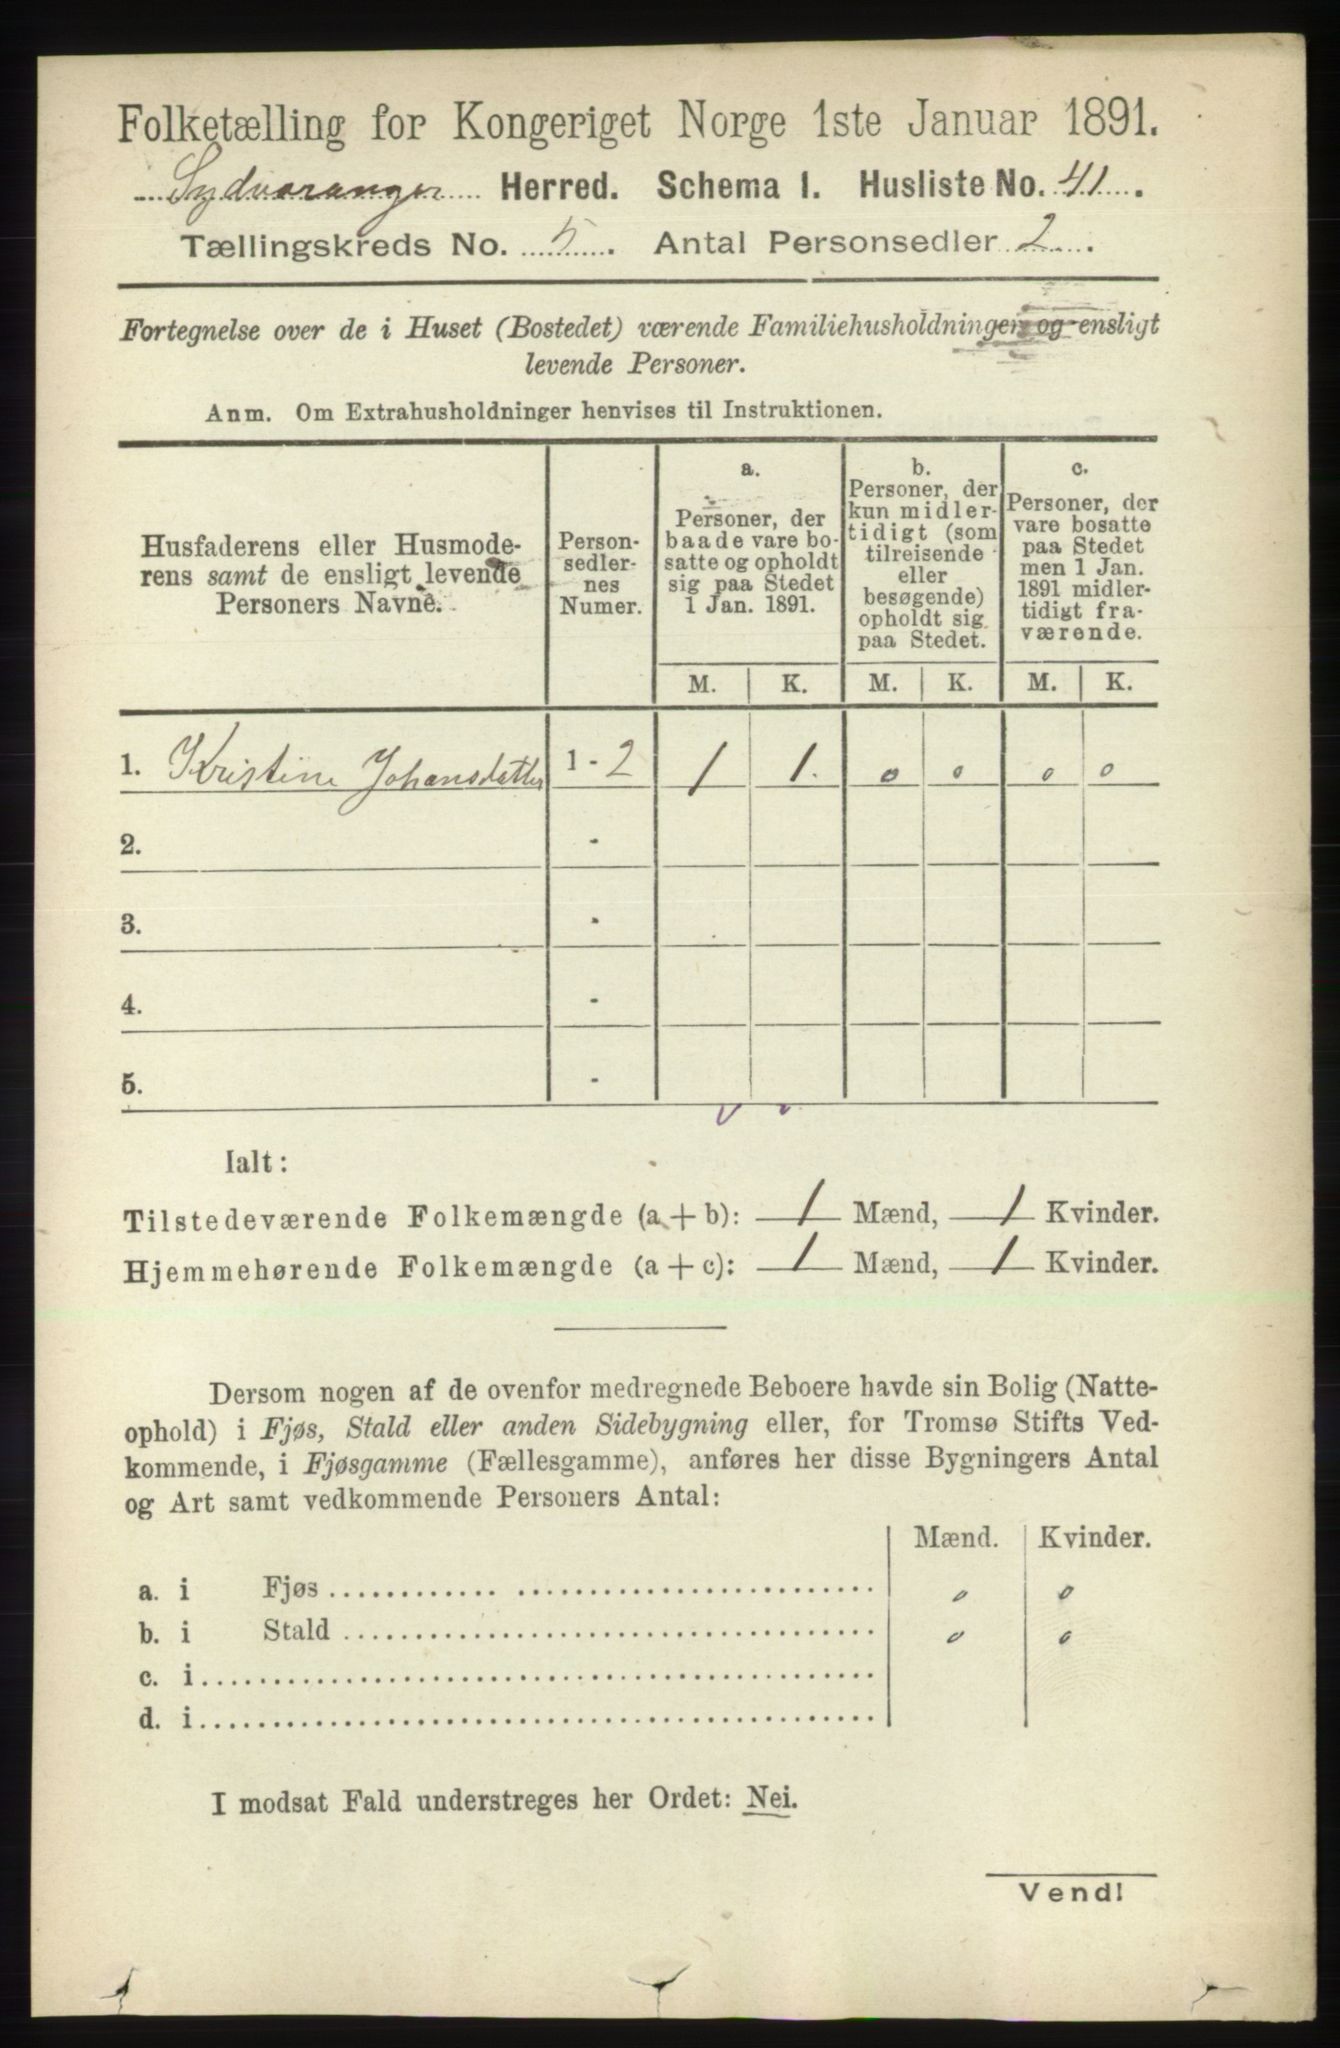 Folketælling for Kongeriget Norge 1ste Januar 1891.
Sydvaranger Herred. Schema 1. Husliste No. 41.
Tællingskreds No. 5. Antal Personsedler 2.
Fortegnelse over de i Huset (Bostedet) værende Familiehusholdninger og ensligt
levende Personer.
Anm. Om Extrahusholdninger henvises til Instruktionen.
Husfaderens eller Husmode-
rens samt de ensligt levende
Personers Navne.
Person-
sedler-
nes
Numer.
a.
Personer, der
baade vare bo-
satte og opholdt
sig paa Stedet
1 Jan. 1891.
b.
Personer, der
kun midler-
tidigt (som
tilreisende
eller
besøgende)
opholdt sig
paa Stedet.
c.
Personer, der
vare bosatte
paa Stedet
men 1 Jan.
1891 midler-
tidigt fra-
værende.
M. K. M. K. M. K.
1. Kristine Johansdatter 1 - 2 1 1. 0 0 0 0
2. -
3. -
4. -
5. -
Ialt:
Tilstedeværende Folkemængde (a + b): 1 Mænd, 1 Kvinder.
Hjemmehørende Folkemængde (a + c): 1 Mænd, 1 Kvinder.
Dersom nogen af de ovenfor medregnede Beboere havde sin Bolig (Natte-
ophold) i Fjøs, Stald eller anden Sidebygning eller, for Tromsø Stifts Ved-
kommende, i Fjøsgamme (Fællesgamme), anføres her disse Bygningers Antal
og Art samt vedkommende Personers Antal:
Mænd. Kvinder.
a. i Fjøs 0 0
b. i Stald 0 0
c. i
d. i
I modsat Fald understreges her Ordet: Nei.
Vend!